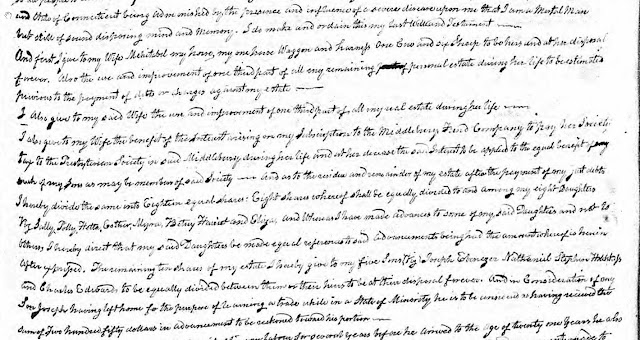 and State of Connecticut being admonished by the presence and influence of a severe disease upon me that I am a Mortal Man
but still of sound disposing mind and Memory. I do make and ordain this my last Will and Testament —
And first I give to my Wife Mehitabel my horse, my one horse Waggon and harness One Cow and six Sheep to be hers and at her disposal
forever. Also the use and improvement of one third part of all my remaining personal estate during her life to be estimated
previous to the payment of debts or charges against my estate —
I also give to my said Wife the use and improvement of one third part of all my real estate during her life —
I also give to my Wife the benefit of the Interest arising on my Subscription to the Middlebury Fund Company to pay her Society
tax to the Presbyterian Society in said Middlebury during her life and at her decease the said Interest to be applied to the equal benefit of my
such of my Sons as may be members of said Society — And as to the residue and remainder of my estate after the payment of my just debts
I hereby divide the same into Eighteen equal shares: Eight Shares whereof shall be equally divided to and among my eight Daughters
Viz Sally, Polly Esther, Myra, Betsey Harriet and Eliza, and Whereas I have made advances to some of my said Daughters and not to
others, I hereby direct that my said Daughters be made equal reference to said advancements being had the amount whereof is herein
after expressed. The remaining ten shares of my estate I hereby give to my five Sons (Viz) Joseph Ebenezer Nathaniel Stephen
and Charles Edward: to be equally divided between them or their heirs to be at their disposal forever. And in Consideration of my
Son Joseph having left home for the purpose of learning a trade while in a State of Minority he is to be considered as having received the
sum of Five hundred fifty dollars in advancement to be reckoned toward his portion —
for several years before he arrived to the age of twenty one Years he also